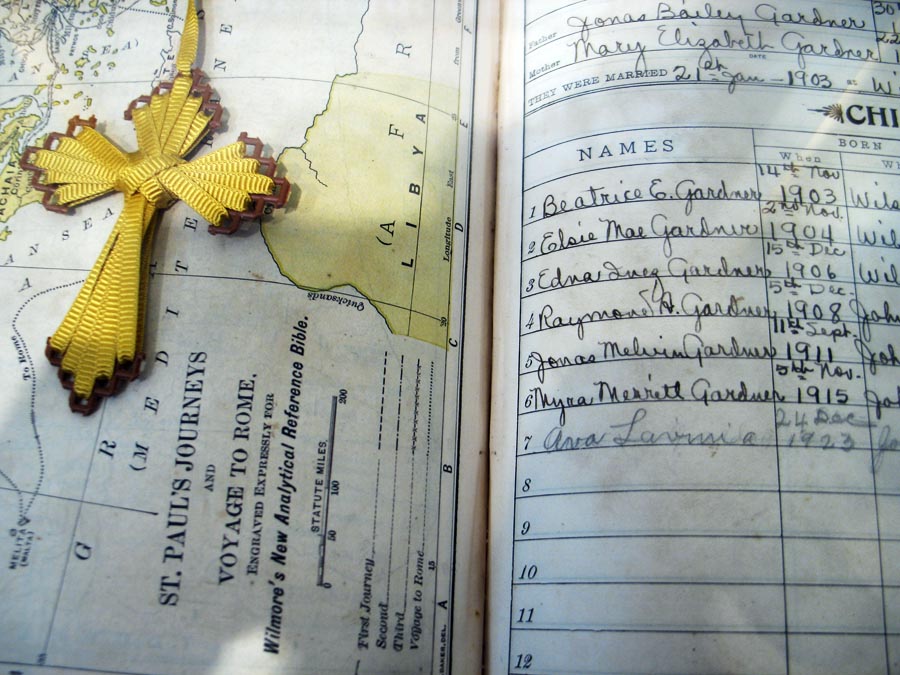 R
N E
S E A
A N S E A
ACHAI
(A F
L I B Y A
M E D I T E
G R
(M E D I
Quicksands
To Rome
MELITA
(MALTA)
Longitude East
from
E
D
C
B
A
30
15
ST. PAUL'S JOURNEYS
AND
VOYAGE TO ROME.
ENGRAVED EXPRESSLY FOR
Wilmore's New Analytical Reference Bible.
STATUTE MILES
0 50 100 200
First Journey
Second
Third
Voyage to Rome
BAKER, DEL.
Father Jonas Bailey Gardner 30
Mother Mary Elizabeth Gardner 22
DATE
THEY WERE MARRIED 21st Jan - 1903 at Wi
CHI
NAMES BORN
When Wh
14th Nov
1 Beatrice E. Gardner 1903 Wils
2nd Nov.
2 Elsie Mae Gardner 1904 Wil
15th Dec
3 Edna Inez Gardner 1906 Wil
5th Dec.
4 Raymond H. Gardner 1908 John
11th Sept.
5 Jonas Melvin Gardner 1911 Joh
5th Nov.
6 Myra Merritt Gardner 1915 Joh
24 Dec
7 Ava Lavinia 1923 Jo
8
9
10
11
12